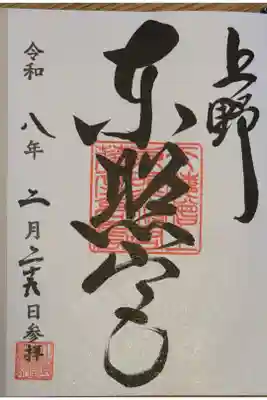 上野
東照宮
令和八年二月二十日参拝